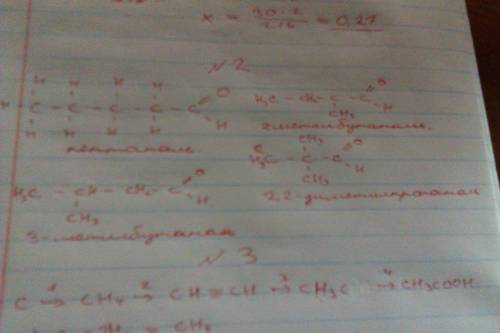 x = 30·2/216 = 0,27
N 2
H H H H
H - C - C - C - C - C = O
H H H H H
пентаналь
H₃C - CH₂ - C - C = O
CH₃ H
2метилбутаналь
CH₃
H₃C - C - C = O
CH₃ H
2,2-диметилпропаналь
H₃C - CH - CH₂ - C = O
CH₃ H
3-метилбутаналь
N 3
C 1→ CH₄ 2→ CH≡CH 3→ CH₃C 4→ CH₃COOH